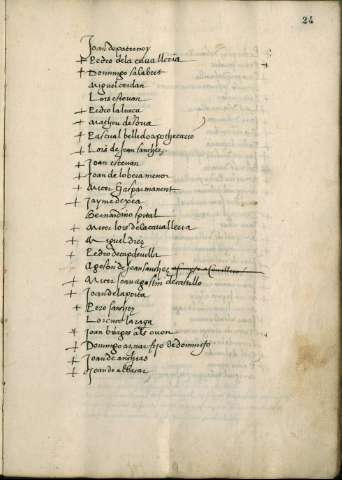 24
Joan de paternoy
+ Pedro de la cavalleria
+ Domingo salabert
miguel cerdan
Lois estevan
+ Pedro la lueca
+ matheu de soria
+ Pascual bellido apothecario
+ Lois de joan sanchez
+ Joan estevan
+ Joan de lobera menor
+ micer Gaspar manent
+ Jayme de xea
Bernardino spital
+ micer lois de la cavalleria
+ miguel diez
+ Pedro de capdevilla
Agostin de joan sanchez
+ micer joan agostin del castillo
+ Joan de la porta
+ Pero sanchez
Lorenço la raga
+ joan burges als ovon
+ Domingo aznar fijo de domingo
+ Joan de anchias
+ Joan de albacar